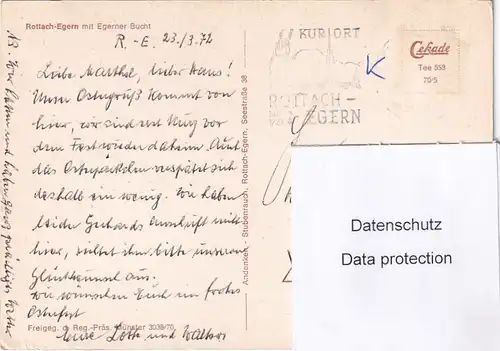 Rottach-Egern mit Egerner Bucht
R.-E. 23./3.72
Liebe Marthel, lieber Hans!
Unser Ostergruß kommt von
hier, wir sind erst kurz vor
dem Fest wieder daheim. Auch
das Osterpäckchen verspätet sich
deshalb ein wenig. Wir haben
leider Gerhards Anschrift nicht
hier, richtet ihm bitte unseren
Glückwunsch aus.
Wir wünschen Euch ein frohes
Osterfest
Eure Lotte und Walther
Freigeg. d. Reg.-Präs. Münster 3038/70
NB. Wir hatten und haben ganz
Andenken Stubenrauch, Rottach-Egern, Seestraße 38
KURORT
ROTTACH-
EGERN
Cekade
Tee 558
70-5
K
Datenschutz
Data protection